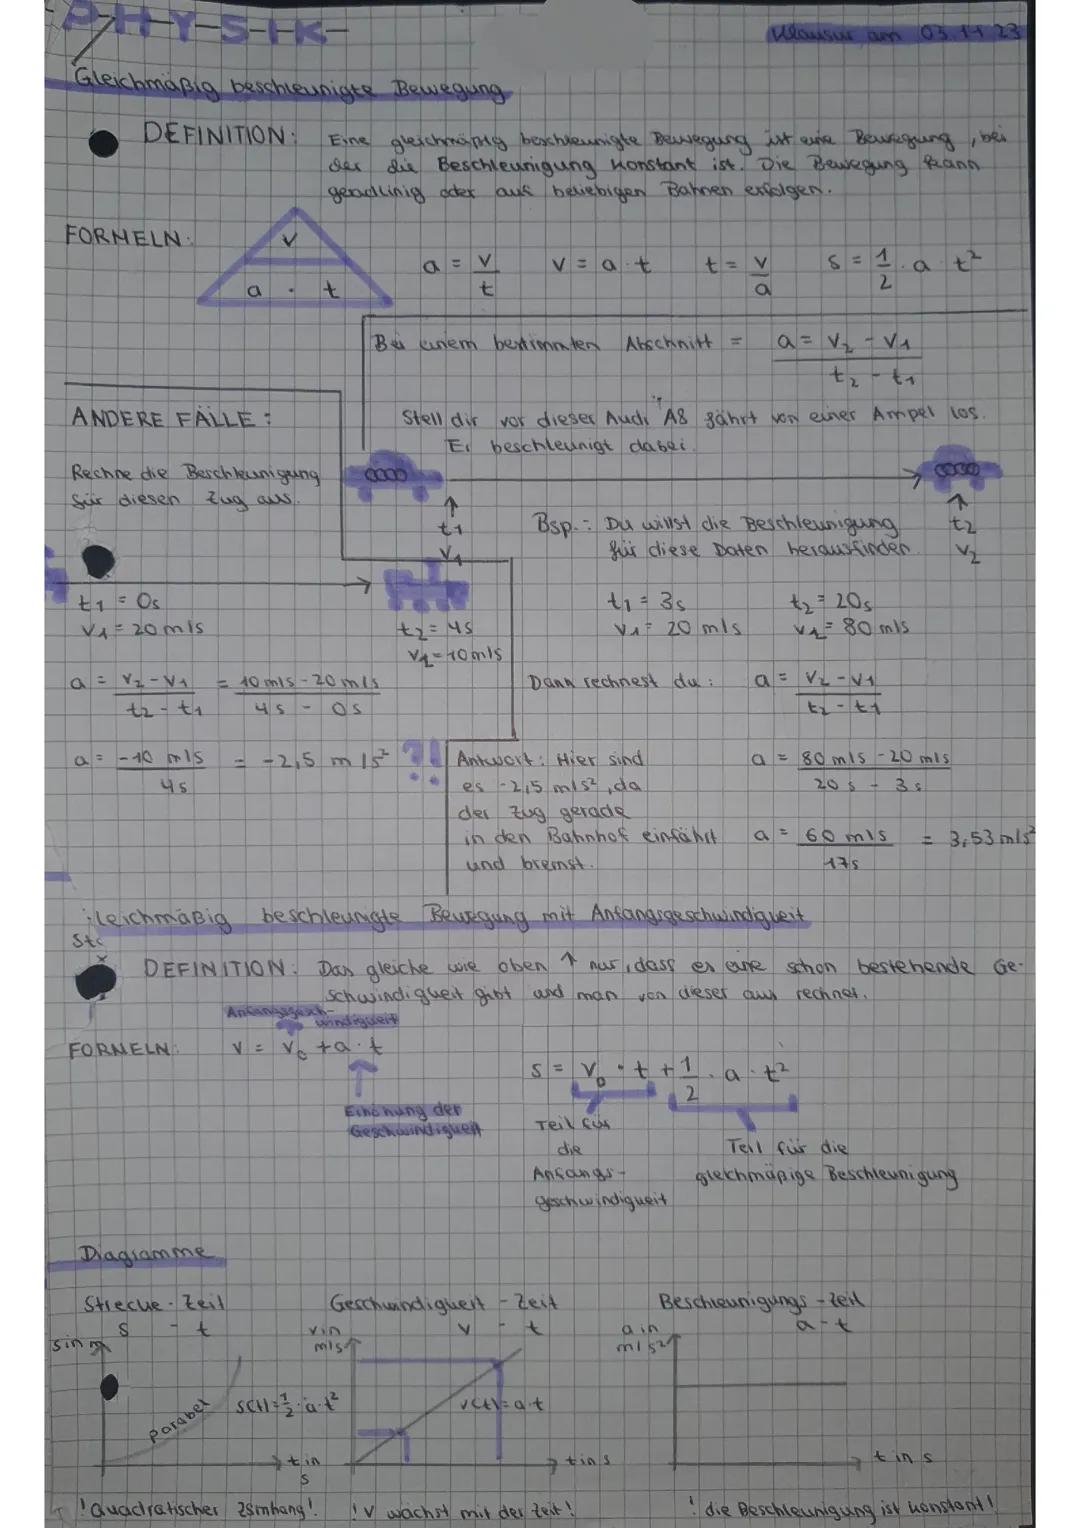 PHYSIK
Klausur am 03.11.23
Gleichmäßig beschleunigte Bewegung
DEFINITION: Eine gleichmäßig beschleunigte Bewegung ist eine Bewegung, bei
der die Beschleunigung konstant ist. Die Bewegung kann
geradlinig oder auf beliebigen Bahnen erfolgen.
FORMELN:
v
a · t
a = v/t v = a · t t = v/a s = 1/2 · a · t²
Bei einem bestimmten Abschnitt = a = v₂ - v₁ / t₂ - t₁
Stell dir vor dieser "Audi A8" fährt von einer Ampel los.
Er beschleunigt dabei.
t₁
v₁
t₂
v₂
Bsp.: Du willst die Beschleunigung
für diese Daten herausfinden.
t₁ = 3s t₂ = 20s
v₁ = 20 m/s v₂ = 80 m/s
Dann rechnest du: a = v₂ - v₁ / t₂ - t₁
a = 80 m/s - 20 m/s / 20 s - 3 s
a = 60 m/s / 17s = 3,53 m/s²
ANDERE FÄLLE:
Rechne die Beschleunigung
für diesen Zug aus.
t₁ = 0s
v₁ = 20 m/s
t₂ = 4s
v₂ = 10 m/s
a = v₂ - v₁ / t₂ - t₁ = 10 m/s - 20 m/s / 4s - 0s
a = -10 m/s / 4s = -2,5 m/s² ?!
Antwort: Hier sind
es -2,5 m/s², da
der Zug gerade
in den Bahnhof einfährt
und bremst.
leichmäßig beschleunigte Bewegung mit Anfangsgeschwindigkeit
DEFINITION: Das gleiche wie oben ↑ nur, dass es eine schon bestehende Ge-
schwindigkeit gibt und man von dieser aus rechnet.
Anfangsgesch-
windigkeit
FORMELN: v = v₀ + a · t
Erhöhung der
Geschwindigkeit
s = v₀ · t + 1/2 · a · t²
Teil für
die
Anfangs-
geschwindigkeit
Teil für die
gleichmäßige Beschleunigung
Diagramme
Strecke - Zeit
s - t
s in m
Parabel
s(t) = 1/2 · a · t²
t in
s
! Quadratischer Zsmhang!
Geschwindigkeit - Zeit
v - t
v in
m/s
v(t) = a · t
t in s
! v wächst mit der Zeit!
Beschleunigungs - Zeit
a - t
a in
m/s²
t in s
! die Beschleunigung ist konstant!